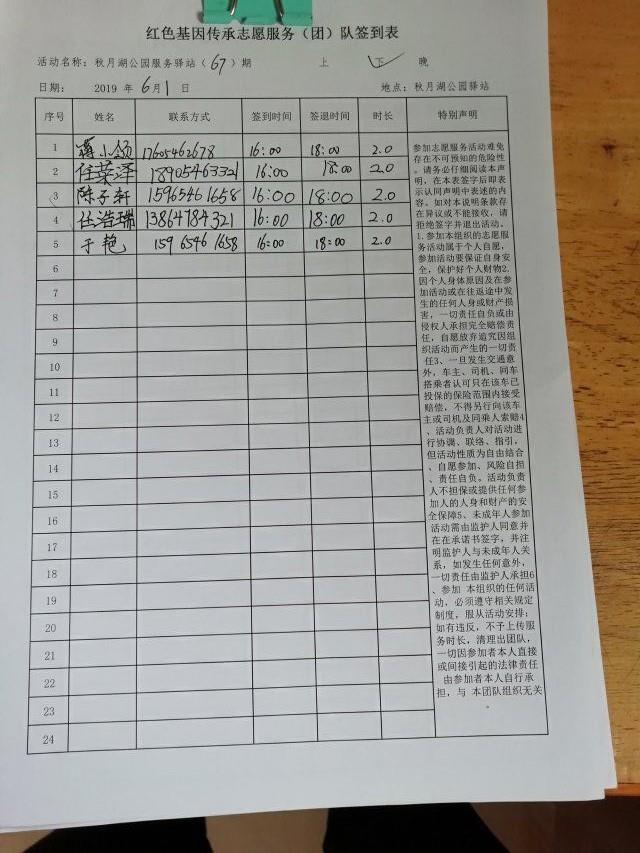 红色基因传承志愿服务（团）队签到表
活动名称：秋月湖公园服务驿站（67）期 上 下 晚
日期： 2019 年 6月1 日 地点：秋月湖公园驿站
序号 姓名 联系方式 签到时间 签退时间 时长 特别声明
1 蒋小领 17605462678 16:00 18:00 2.0
2 任荣泽 18905463321 16:00 18:00 2.0
3 陈子轩 15965461658 16:00 18:00 2.0
4 任浩瑞 13864784321 16:00 18:00 2.0
5 于艳 15965461658 16:00 18:00 2.0
6
7
8
9
10
11
12
13
14
15
16
17
18
19
20
21
22
23
24
参加志愿服务活动难免
存在不可预知的危险性
。请务必仔细阅读本声
明，在本表签字后即表
示认同声明中表述的内
容。如对本说明条款存
在异议或不能接收，请
拒绝签字并退出活动。
1.参加本组织的志愿服
务活动属于个人自愿，
参加活动要保证自身安
全，保护好个人财物2.
因个人身体原因及在参
加活动或在往返途中发
生的任何人身或财产损
害，一切责任自负或由
侵权人承担完全赔偿责
任，自愿放弃追究因组
织活动而产生的一切责
任3、一旦发生交通意
外，车主、司机、同车
搭乘者认可只在该车已
投保的保险范围内接受
赔偿，不得另行向该车
主或司机及同乘人索赔4
、活动负责人对活动进
行协调、联络、指引，
但活动性质为自由结合
、自愿参加、风险自担
、责任自负。活动负责
人不担保或提供任何参
加人的人身和财产的安
全保障5、未成年人参加
活动需由监护人同意并
在在承诺书签字，并注
明监护人与未成年人关
系，如发生任何意外，
一切责任由监护人承担6
、参加 本组织的任何活
动，必须遵守相关规定
制度，服从活动安排；
如有违反，不予上传服
务时长，清理出团队，
一切因参加者本人直接
或间接引起的法律责任
由参加者本人自行承
担，与 本团队组织无关
。